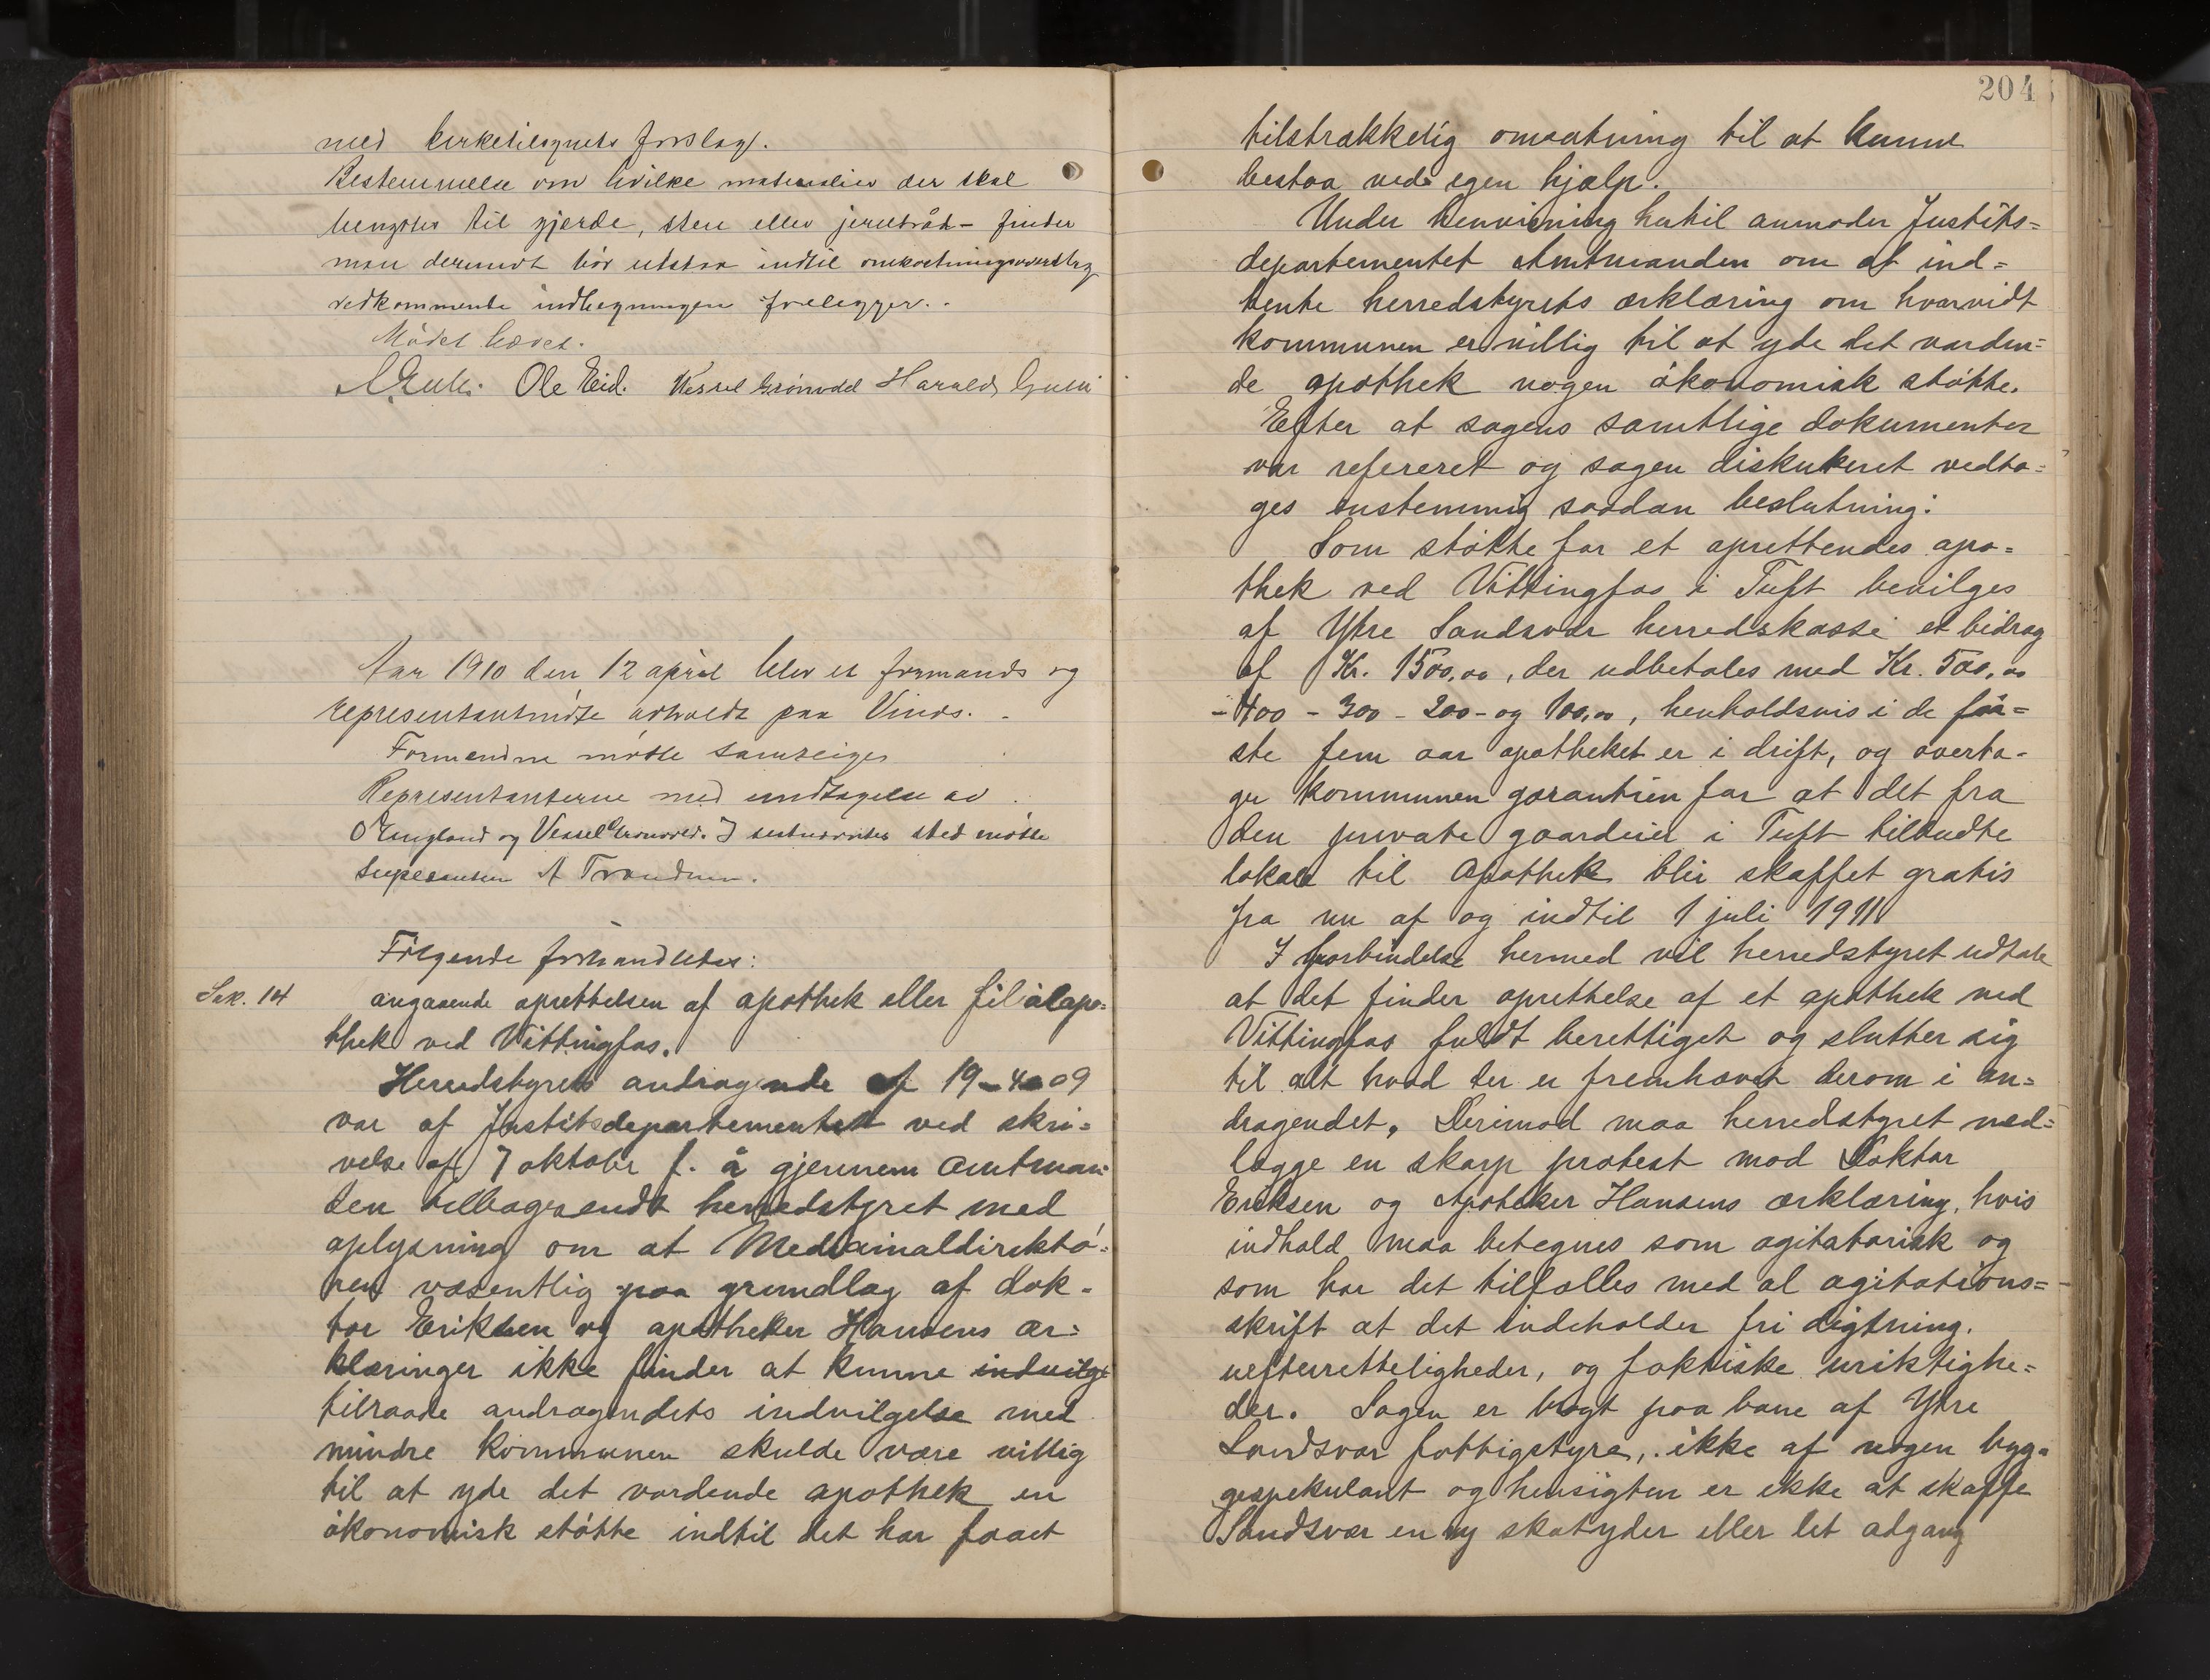 med kirketilsynets forslag.
Bestemmelse om hvilke materialier der skal
benyttes til gjærde, sten eller jerntråd - finder
man derimot bör utstaa indtil omkostningsoverslag
vedkommende indhegningen forelegger.
Mödet hævet.
Ole Eid. Vessel Grönvold Harald
Aar 1910 den 12 april blev et formands og
representantmöte avholdt paa Vinds.
Formændne mötte samtlige
Representanterne med undtagelse av
O England og Vessel Grønvold. I sistnævntes sted mötte
suppleanten A Trondsen.
Fölgende forhandledes:
Sak. 14 angaaende oprettelsen af apothek eller filialapo-
thek ved Vittingfos.
Herredstyrets andragende af 19-4-09
var af Justitsdepartementet ved skri-
velse af 7 oktober f. å gjennem Amtman-
den tilbagesendt herredstyret med
oplysning om at Medicinaldirektö-
ren væsentlig paa grundlag af dok-
tor Eriksen og apotheker Hansens er-
klæringer ikke finder at kunne indvilge
tilraade andragendets indvilgelse med
mindre kommunen skulde være villig
til at yde det vordende apothek en
ökonomisk stötte indtil det har faaet
204
tilstrækkelig omsætning til at kunne
bestaa ved egen hjælp.
Under henvisning hertil anmoder Justits-
departementet Amtmanden om at ind-
hente herredstyrets erklæring om hvorvidt
kommunen er villig til at yde det vorden-
de apothek nogen ökonomisk stötte.
Efter at sagens samtlige dokumenter
var refereret og sagen diskuteret vedto-
ges enstemmig saadan beslutning:
Som stötte for et oprettendes apo-
thek ved Vittingfos i Tuft bevilges
af Ytre Sandsvær herredskasse et bidrag
af Kr. 1500,00, der udbetales med Kr. 500,00
- 400 - 300 - 200 - og 100,00, henholdsvis i de för-
ste fem aar apotheket er i drift, og overta-
ger kommunen garantien for at det fra
den private gaardeier i Tuft tilbudte
lokale til Apothek blir skaffet gratis
fra nu af og indtil 1 juli 1911
I forbindelse hermed vil herredstyret udtale
at det finder oprettelse af et apothek ved
Vittingfos fuldt berettiget og slutter sig
til alt hvad der er fremhævet derom i an-
dragendet. Derimod maa herredstyret ned-
lægge en skarp protest mod Doktor
Eriksen og Apoteker Hansens erklæring, hvis
indhold maa betegnes som agitatorisk og
som har det tilfælles med al agitations-
skrift at det indeholder fri digtning.
uefterretteligheder, og faktiske uriktighe-
der. Sagen er bragt paa bane af Ytre
Sandsvær fattigstyre, ikke af nogen byg-
gespekulant og hensigten er ikke at skaffe
Sandsvær en ny skatyder eller let adgang